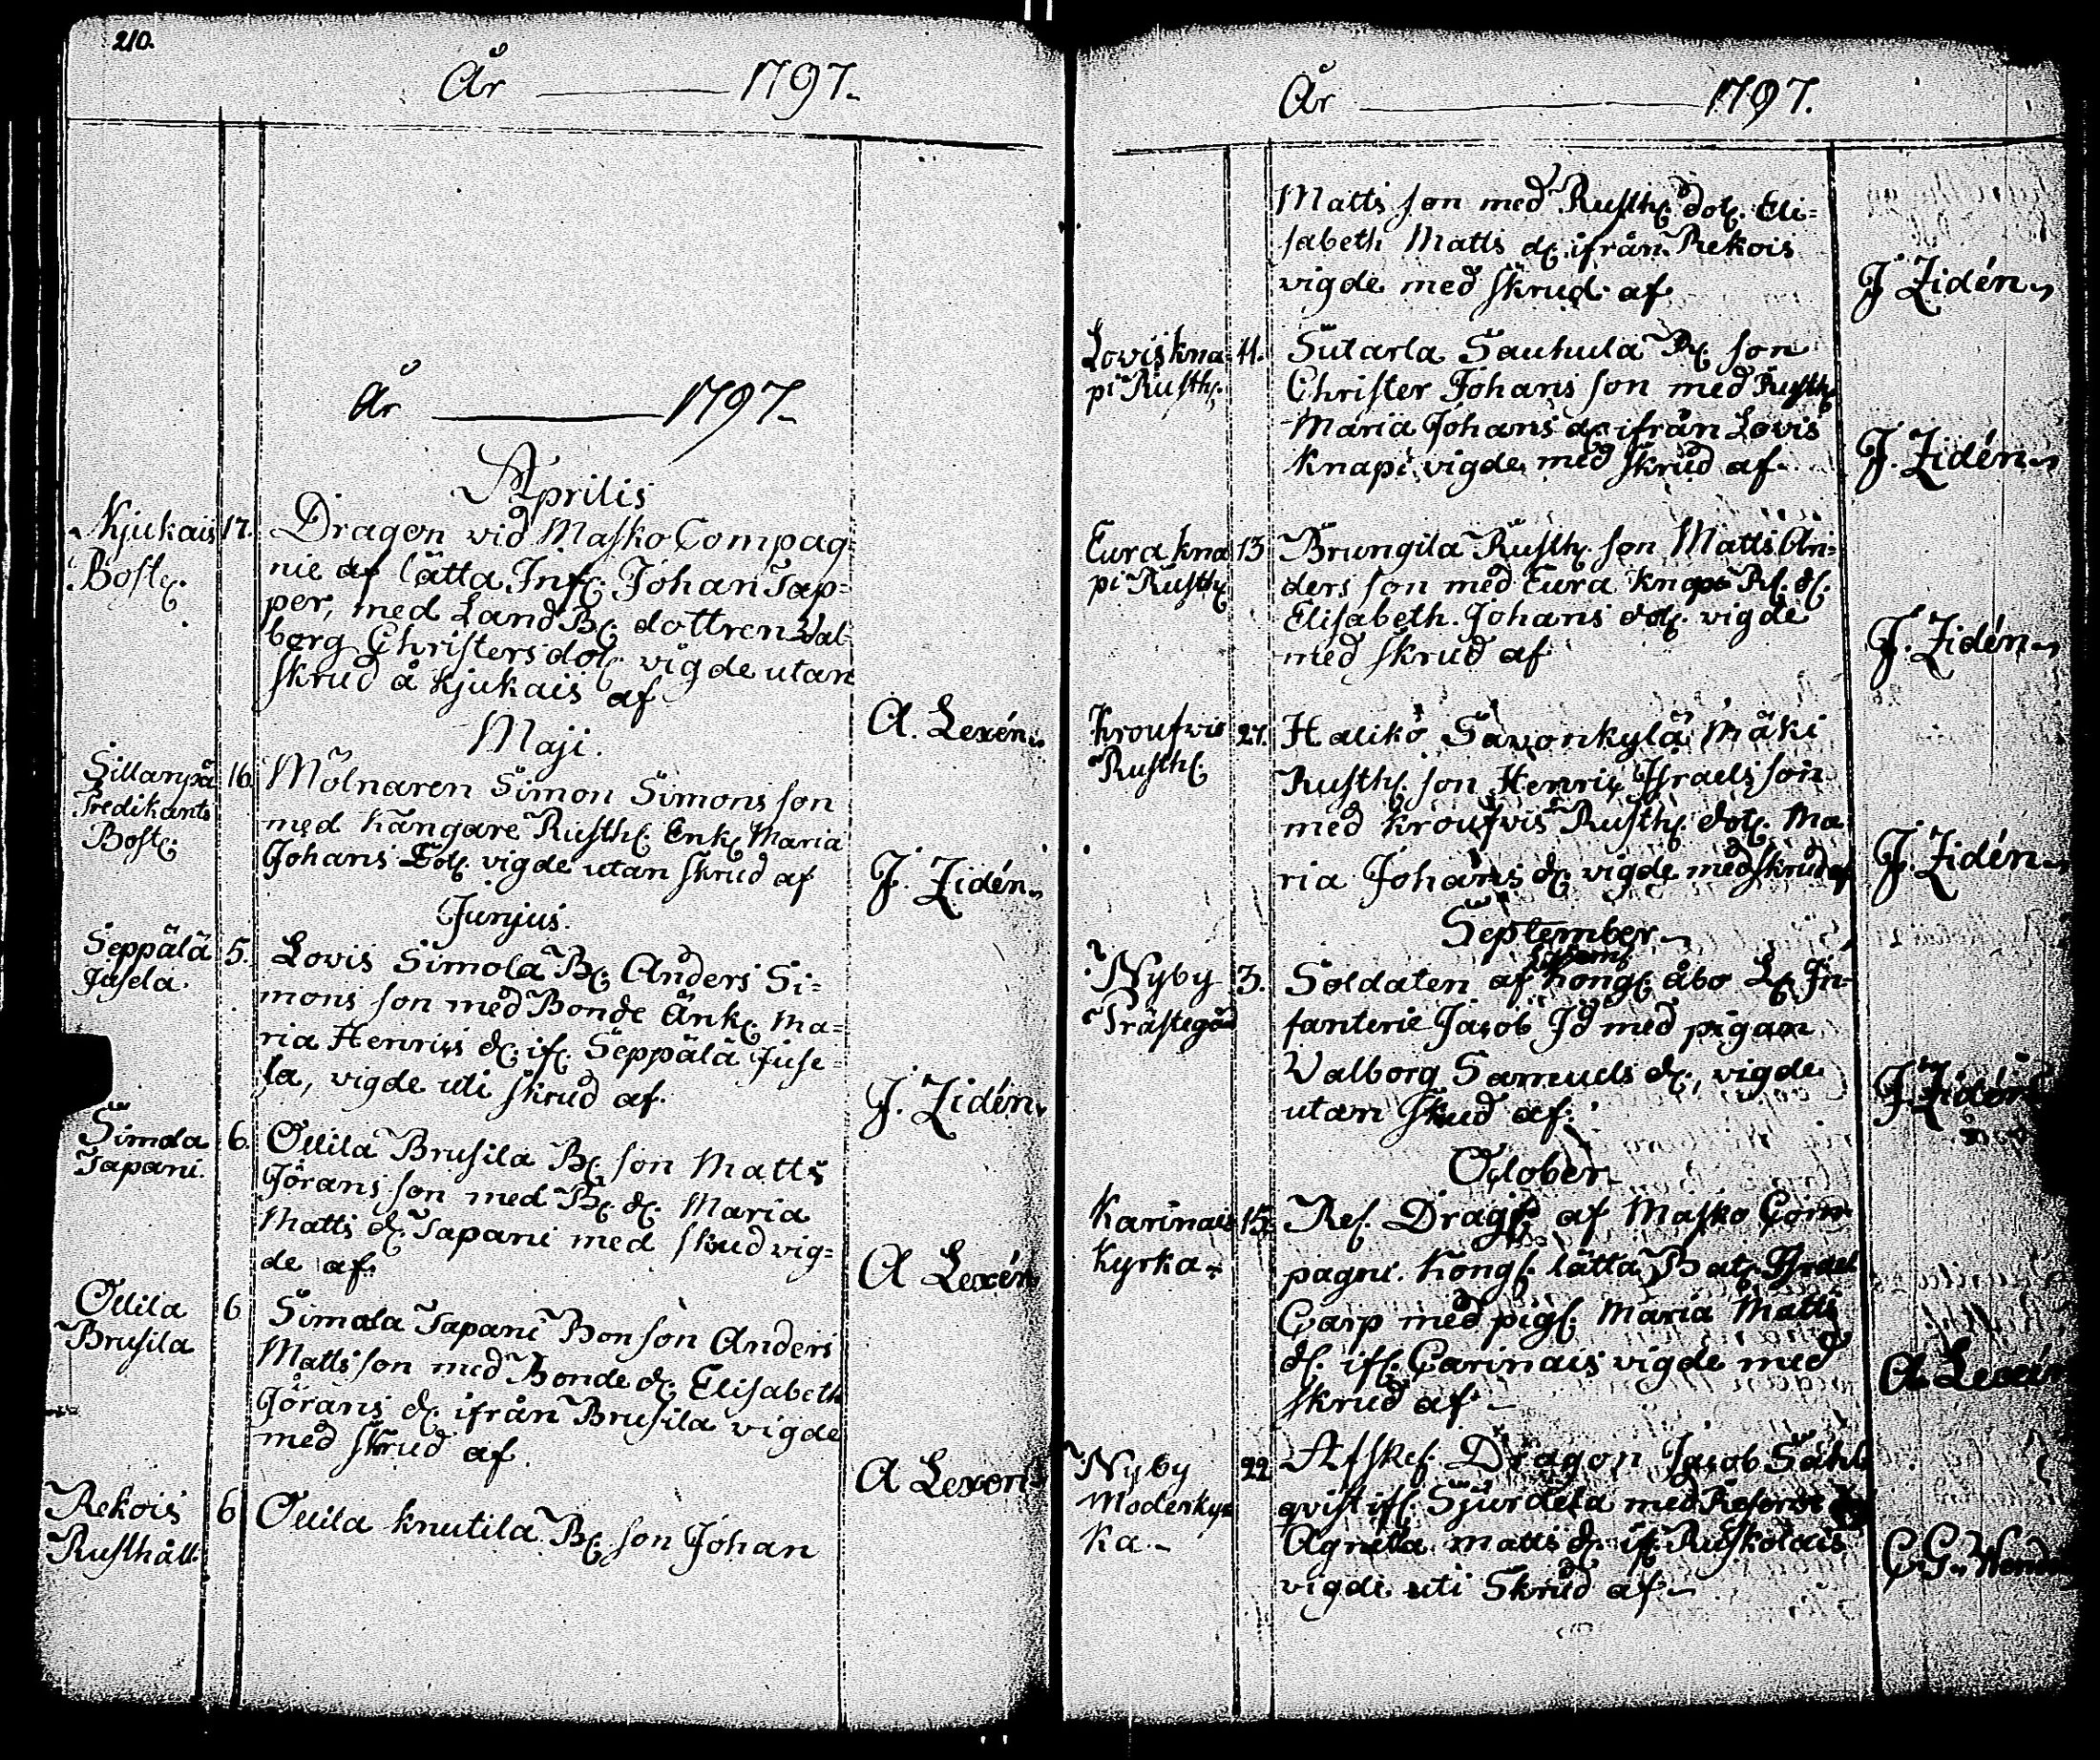 210.
År 1797.
År 1797.
Aprilis
Kjukais 17. Dragon vid Masko Compag-
Bost. nie af lätta Inf. Johan Tap-
per, med Land B. dottren Wal-
borg Christersdot. vigde utan
skrud å Kjukais af
A. Lexén.
Maji.
Sillanpää 16. Mölnaren Simon Simons son
Predikants med Kangare Rusth. Enk. Maria
Bost. Johans dot. vigde utan skrud af
J. Zidén.
Junjus.
Seppälä 5. Lovis Simola B. Anders Si-
Jusela. mons son med Bonde Änk. Ma-
ria Henrics d. if. Seppälä Juse-
la, vigde uti skrud af.
J. Zidén.
Simola 6. Ollila Brusila B. son Matts
Tapani. Jörans son med B. d. Maria
Matts d. Tapani med skrud vig-
de af.
A Lexén
Ollila 6 Simola Tapani Bon son Anders
Brusila Matts son med Bonde d. Elisabeth
Jörans d. ifrån Brusila vigde
med skrud af.
A Lexen
Rekois 6 Ollila Knutila B. son Johan
Rusthåll.
År 1797.
Matts son med Rusth. dot. Eli-
sabeth Matts d. ifrån Rekois
vigde med skrud af
J Zidén
Lovis kna 11. Sutarla Sauhula R. son
pi Rusth. Christer Johans son med Rusth
Maria Johans d. ifrån Lovis
Knapi vigde med skrud af
J. Zidén
Eura kna 13 Brungila Rusth. son Matts An-
pi Rusth ders son med Eura Knapi R. d.
Elisabeth Johans dot. vigde
med skrud af
J. Zidén
Kroufvis 27. Haliko Savonkylä Mäki
Rusth. Rusth. son Henric Israels son
med Kroufvis Rusth. dot. Ma
ria Johans d. vigde med skrud af
J. Zidén
September
Nyby 3. Soldaten af Kongl. Åbo L. In-
Prästegård fanterie Jacob Id med pigan
Walborg Samuels d., vigde
utan skrud af.
J. Zidén
October
Karinais 15. Res. Drag. af Masko Com
Kyrka pagni. Kongl. lätta Bat. Israel
Carp med pig. Maria Matts
d. if. Carinais vigde med
skrud af
A. Lexén
Nyby 22 Afsked. Dragon Jacob Sahl
Moderkyr qvist if. Sjurdela med
ka. Agneta Matts d. if. Ruskolais
vigde uti Skrud af